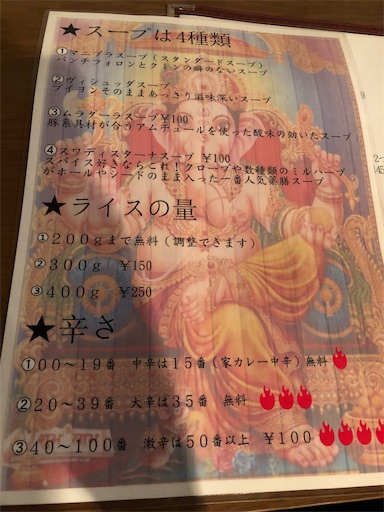 ★スープは4種類
①マニプラスープ（スタンダードスープ）
パンチフォロンとクミンの癖のないスープ
②ヴィシュッダスープ
ブイヨンそのままあっさり滋味深いスープ
③ムラダーラスープ¥100
豚系具材が合うアムチュールを使った酸味の効いたスープ
④スワディスターナスープ ¥100
スパイス好きならこれ！クローブや数種類のミルハーブ
がホールやシードのまま入った一番人気薬膳スープ
★ライスの量
①200gまで無料（調整できます）
②300g ¥150
③400g ¥250
★辛さ
①00～19番 中辛は15番（家カレー中辛）無料
②20～39番 大辛は35番 無料
③40～100番 激辛は50番以上 ¥100